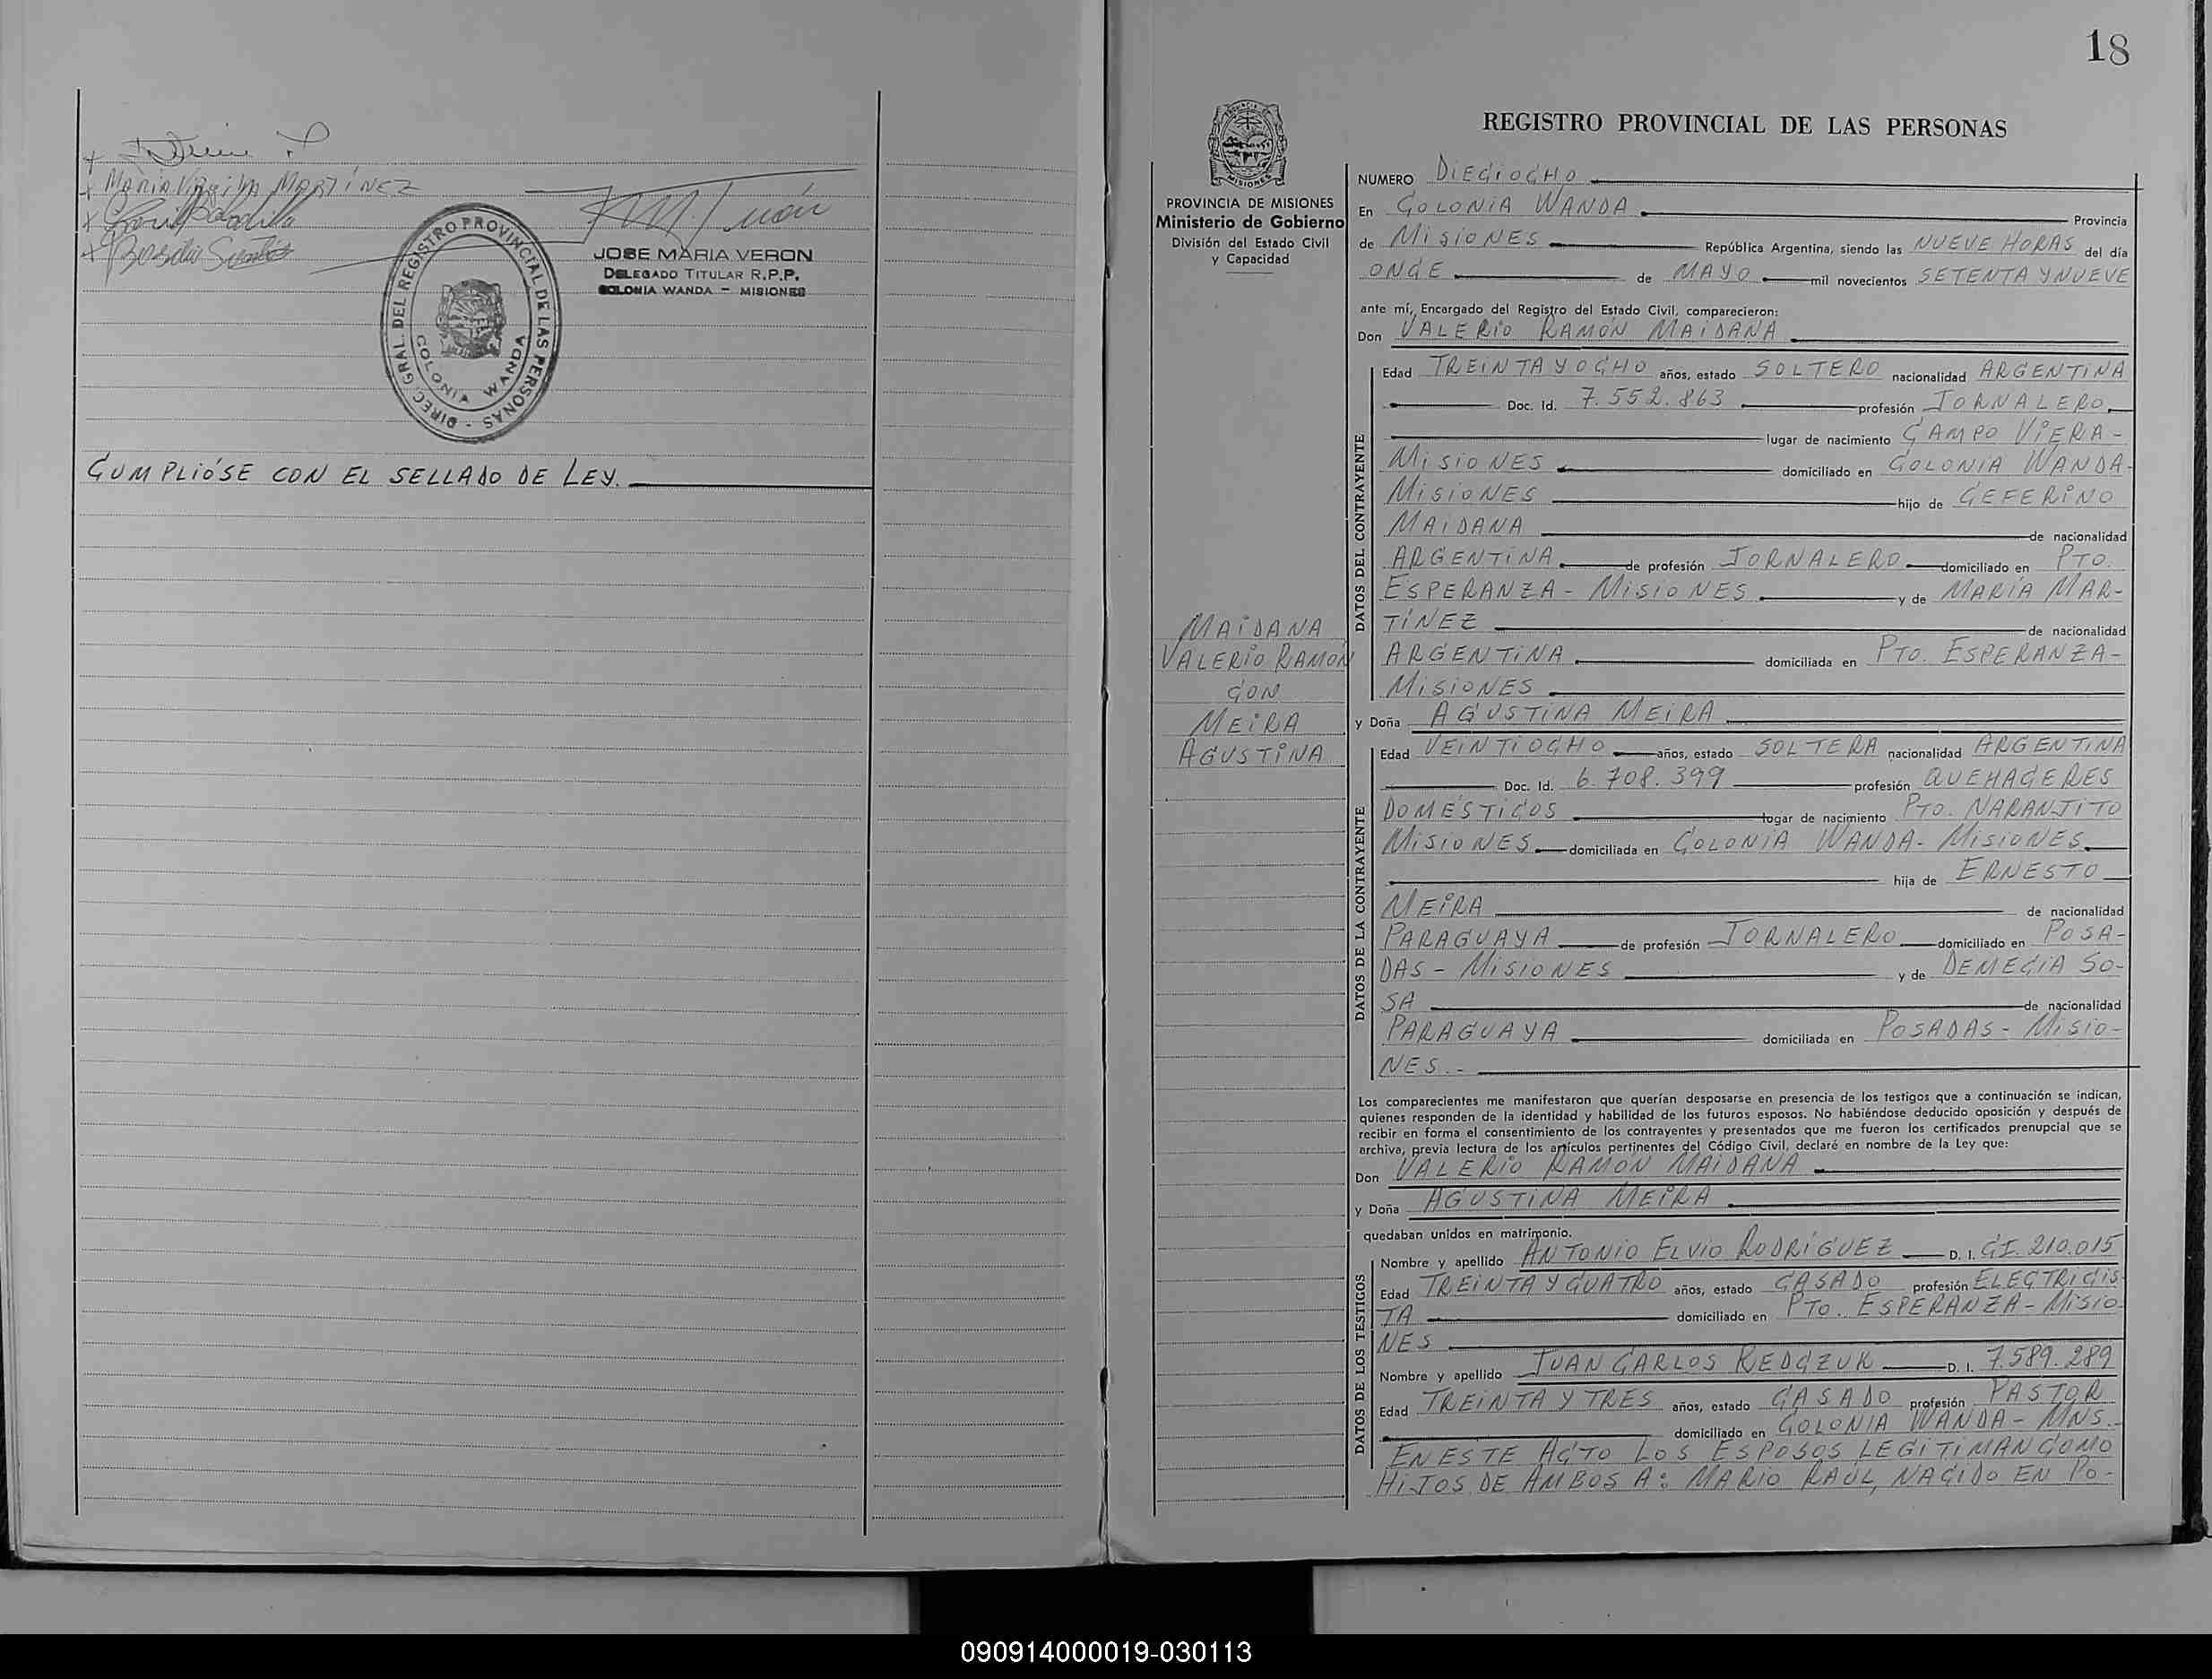 MARIA VIRGINIA MARTÍNEZ
JOSE MARIA VERON
DELEGADO TITULAR R.P.P.
COLONIA WANDA - MISIONES
DIREC. GRAL. DEL REGISTRO PROVINCIAL DE LAS PERSONAS
COLONIA WANDA
CUMPLIÓSE CON EL SELLADO DE LEY.
18
REGISTRO PROVINCIAL DE LAS PERSONAS
MISIONES
PROVINCIA DE MISIONES
Ministerio de Gobierno
División del Estado Civil
y Capacidad
MAIDANA
VALERIO RAMÓN
CON
MEIRA
AGUSTINA
NUMERO DIECIOCHO
En COLONIA WANDA Provincia
de MISIONES República Argentina, siendo las NUEVE HORAS del día
ONCE de MAYO mil novecientos SETENTA Y NUEVE
ante mí, Encargado del Registro del Estado Civil, comparecieron:
Don VALERIO RAMÓN MAIDANA
DATOS DEL CONTRAYENTE
Edad TREINTA Y OCHO años, estado SOLTERO nacionalidad ARGENTINA
Doc. Id. 7.552.863 profesión JORNALERO
lugar de nacimiento CAMPO VIERA-
MISIONES domiciliado en COLONIA WANDA-
MISIONES hijo de CEFERINO
MAIDANA de nacionalidad
ARGENTINA de profesión JORNALERO domiciliado en PTO.
ESPERANZA - MISIONES y de MARÍA MAR-
TÍNEZ de nacionalidad
ARGENTINA domiciliada en PTO. ESPERANZA-
MISIONES
y Doña AGUSTINA MEIRA
DATOS DE LA CONTRAYENTE
Edad VEINTIOCHO años, estado SOLTERA nacionalidad ARGENTINA
Doc. Id. 6.708.399 profesión QUEHACERES
DOMÉSTICOS lugar de nacimiento PTO. NARANJITO
MISIONES domiciliada en COLONIA WANDA- MISIONES
hija de ERNESTO
MEIRA de nacionalidad
PARAGUAYA de profesión JORNALERO domiciliado en POSA-
DAS - MISIONES y de DEMECIA SO-
SA de nacionalidad
PARAGUAYA domiciliada en POSADAS - MISIO-
NES.-
Los comparecientes me manifestaron que querían desposarse en presencia de los testigos que a continuación se indican,
quienes responden de la identidad y habilidad de los futuros esposos. No habiéndose deducido oposición y después de
recibir en forma el consentimiento de los contrayentes y presentados que me fueron los certificados prenupcial que se
archiva, previa lectura de los artículos pertinentes del Código Civil, declaré en nombre de la Ley que:
Don VALERIO RAMÓN MAIDANA
y Doña AGUSTINA MEIRA
quedaban unidos en matrimonio.
DATOS DE LOS TESTIGOS
Nombre y apellido ANTONIO ELVIO RODRÍGUEZ D. I. CI. 210.015
Edad TREINTA Y CUATRO años, estado CASADO profesión ELECTRICIS-
TA domiciliado en PTO. ESPERANZA - MISIO-
NES
Nombre y apellido JUAN CARLOS REDCZUK D. I. 7.589.289
Edad TREINTA Y TRES años, estado CASADO profesión PASTOR
domiciliado en COLONIA WANDA - MNS.-
EN ESTE ACTO LOS ESPOSOS LEGITIMAN COMO
HIJOS DE AMBOS A: MARIO RAÚL, NACIDO EN PO-
090914000019-030113